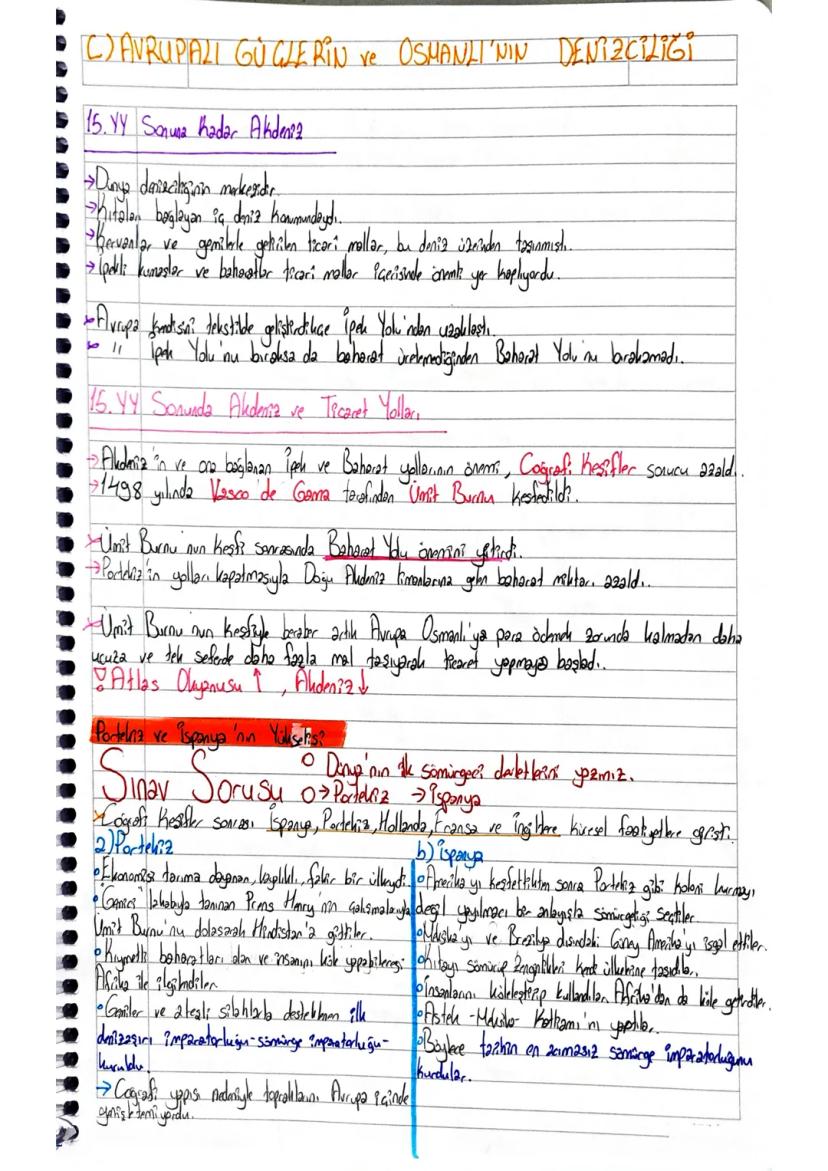 C) AVRUPALI GÜÇLERİN ve OSMANLI'NIN DENİZCİLİĞİ
15.YY Sonuna Kadar Akdeniz
→Dünya denizciliğinin merkezidir.
→Kıtaları bağlayan iç deniz konumundaydı.
→Kervanlar ve gemilerle getirilen ticari mallar, bu deniz üzerinden taşınmıştı.
→İpekli kumaşlar ve baharatlar ticari mallar içerisinde önemli yer kaplıyordu.
Avrupa kendisini tekstilde geliştirdikçe İpek Yolu'ndan uzaklaştı.
" İpek Yolu'nu bıraksa da baharat üretemediğinden Baharat Yolu'nu bırakamadı.
15.YY Sonunda Akdeniz ve Ticaret Yolları
→Akdeniz'in ve ona bağlanan İpek ve Baharat yollarının önemi, Coğrafi Keşifler sonucu azaldı.
→1498 yılında Vasco de Gama tarafından Ümit Burnu keşfedildi.
Ümit Burnu'nun keşfi sonrasında Baharat Yolu önemini yitirdi.
→Portekiz'in yolları kapatmasıyla Doğu Akdeniz limanlarına gelen baharat miktarı azaldı.
Ümit Burnu'nun keşfiyle beraber artık Avrupa Osmanlı'ya para ödemek zorunda kalmadan daha
ucuza ve tek seferde daha fazla mal taşıyarak ticaret yapmaya başladı.
Atlas Okyanusu ↑, Akdeniz ↓
Portekiz ve İspanya'nın Yükselişi
Sınav Sorusu
○ Dünya'nın ilk sömürgeci devletlerini yazınız.
○→Portekiz →İspanya
Coğrafi Keşifler sonrası İspanya, Portekiz, Hollanda, Fransa ve İngiltere küresel faaliyetlere girişti.
a) Portekiz
Ekonomisi tarıma dayanan, kapalı, fakir bir ülkeydi.
"Gemici" lakabıyla tanınan Prens Henry'nin çalışmalarıyla
Ümit Burnu'nu dolaşarak Hindistan'a gittiler.
Kıymetli baharatları alan ve insanını köle yapabileceği
Afrika ile ilgilendiler.
Gemiler ve ateşli silahlarla desteklenen ilk
denizaşırı imparatorluğu-sömürge imparatorluğu-
kuruldu.
→ Coğrafi yapısı nedeniyle topraklarını Avrupa içinde
genişletemiyordu.
b) İspanya
Amerika'yı keşfettikten sonra Portekiz gibi koloni kurmayı
değil yayılmacı bir anlayışla sömürgeciliği seçtiler.
Meksika'yı ve Brezilya dışındaki Güney Amerika'yı işgal ettiler.
Kıtayı sömürüp zenginlikleri kendi ülkelerine taşıdılar.
İnsanlarını köleleştirip kullandılar. Afrika'dan da köle getirdiler.
Astek-Meksika Katliamı'nı yaptılar.
Böylece tarihin en acımasız sömürge imparatorluğunu
kurdular.